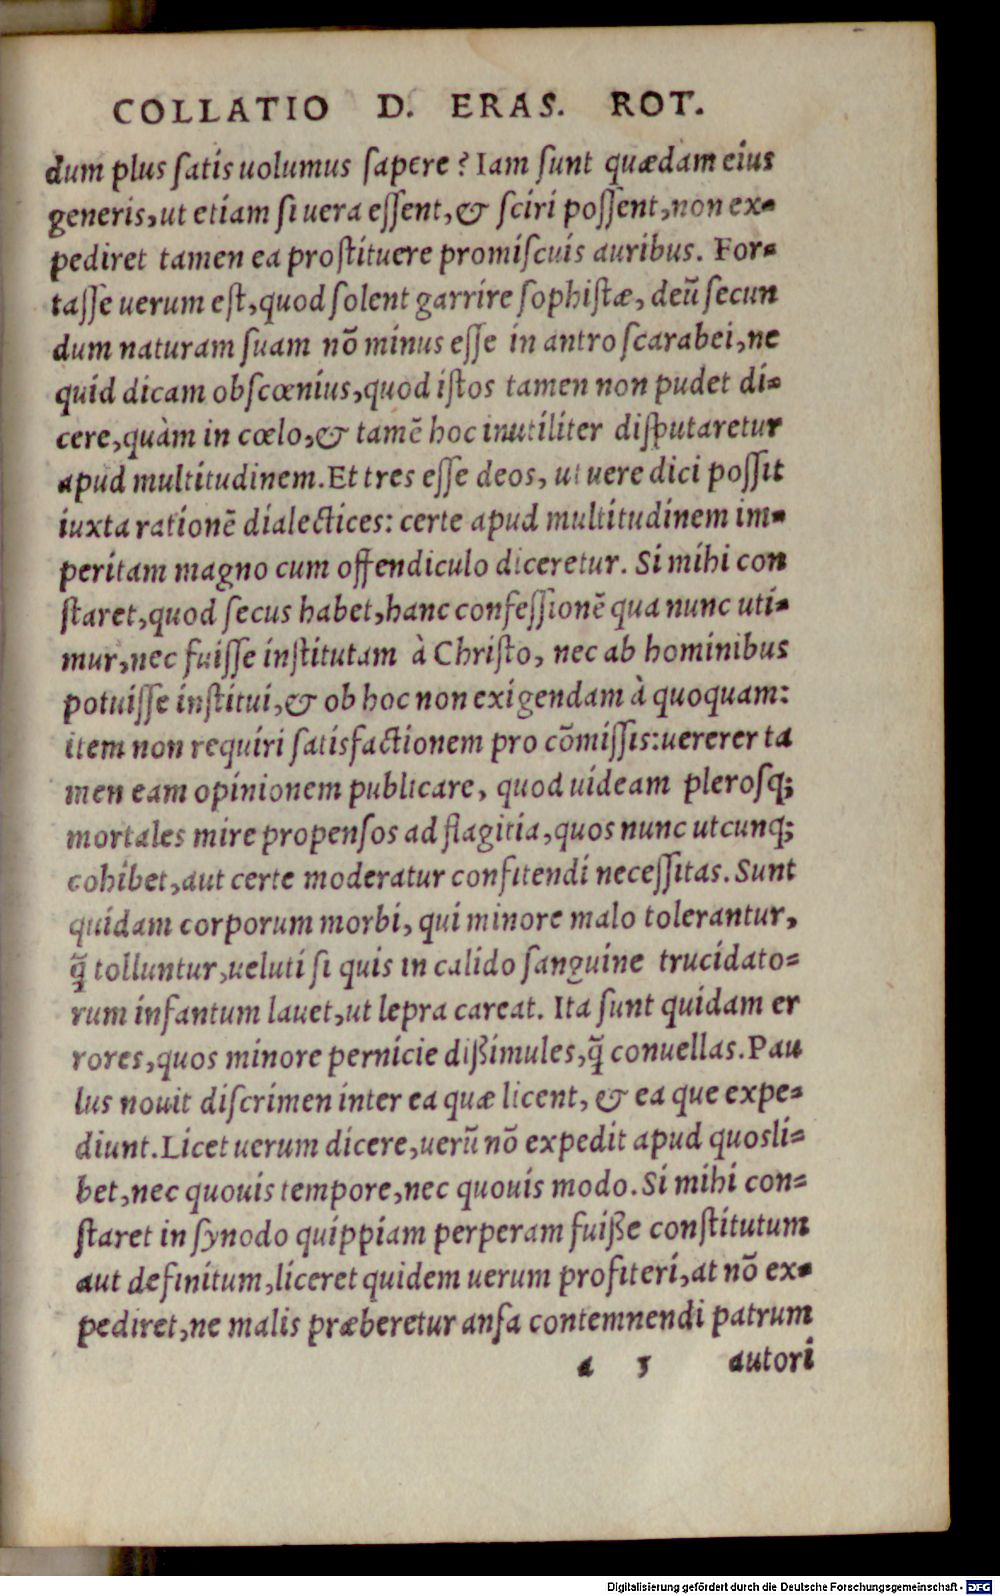 COLLATIO D. ERAS. ROT.
dum plus ſatis uolumus ſapere? Iam ſunt quædam eius
generis, ut etiam ſi uera eſſent, & ſciri poſſent, non ex-
pediret tamen ea proſtituere promiſcuis auribus. For-
taſſe uerum eſt, quod ſolent garrire ſophiſtæ, deū ſecun
dum naturam ſuam nō minus eſſe in antro ſcarabei, ne
quid dicam obſcœnius, quod iſtos tamen non pudet di-
cere, quàm in cœlo, & tamē hoc inutiliter diſputaretur
apud multitudinem. Et tres eſſe deos, ut uere dici poſſit
iuxta rationē dialectices: certe apud multitudinem im-
peritam magno cum offendiculo diceretur. Si mihi con
ſtaret, quod ſecus habet, hanc confeſſionē qua nunc uti-
mur, nec fuiſſe inſtitutam à Chriſto, nec ab hominibus
potuiſſe inſtitui, & ob hoc non exigendam à quoquam:
item non requiri ſatisfactionem pro cōmiſſis: uererer ta
men eam opinionem publicare, quod uideam pleroſq;
mortales mire propenſos ad flagitia, quos nunc utcunq;
cohibet, aut certe moderatur confitendi neceſſitas. Sunt
quidam corporum morbi, qui minore malo tolerantur,
q̄ tolluntur, ueluti ſi quis in calido ſanguine trucidato-
rum infantum lauet, ut lepra careat. Ita ſunt quidam er
rores, quos minore pernicie dißimules, q̄ conuellas. Pau
lus nouit diſcrimen inter ea quæ licent, & ea que expe-
diunt. Licet uerum dicere, uerū nō expedit apud quosli-
bet, nec quouis tempore, nec quouis modo. Si mihi con-
ſtaret in ſynodo quippiam perperam fuiße conſtitutum
aut definitum, liceret quidem uerum profiteri, at nō ex-
pediret, ne malis præberetur anſa contemnendi patrum
a 5 autori
Digitalisierung gefördert durch die Deutsche Forschungsgemeinschaft - DFG